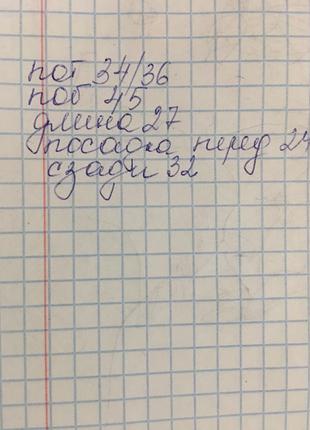 пот 34/36
поб 45
длина 27
посадка перед 24
сзади 32